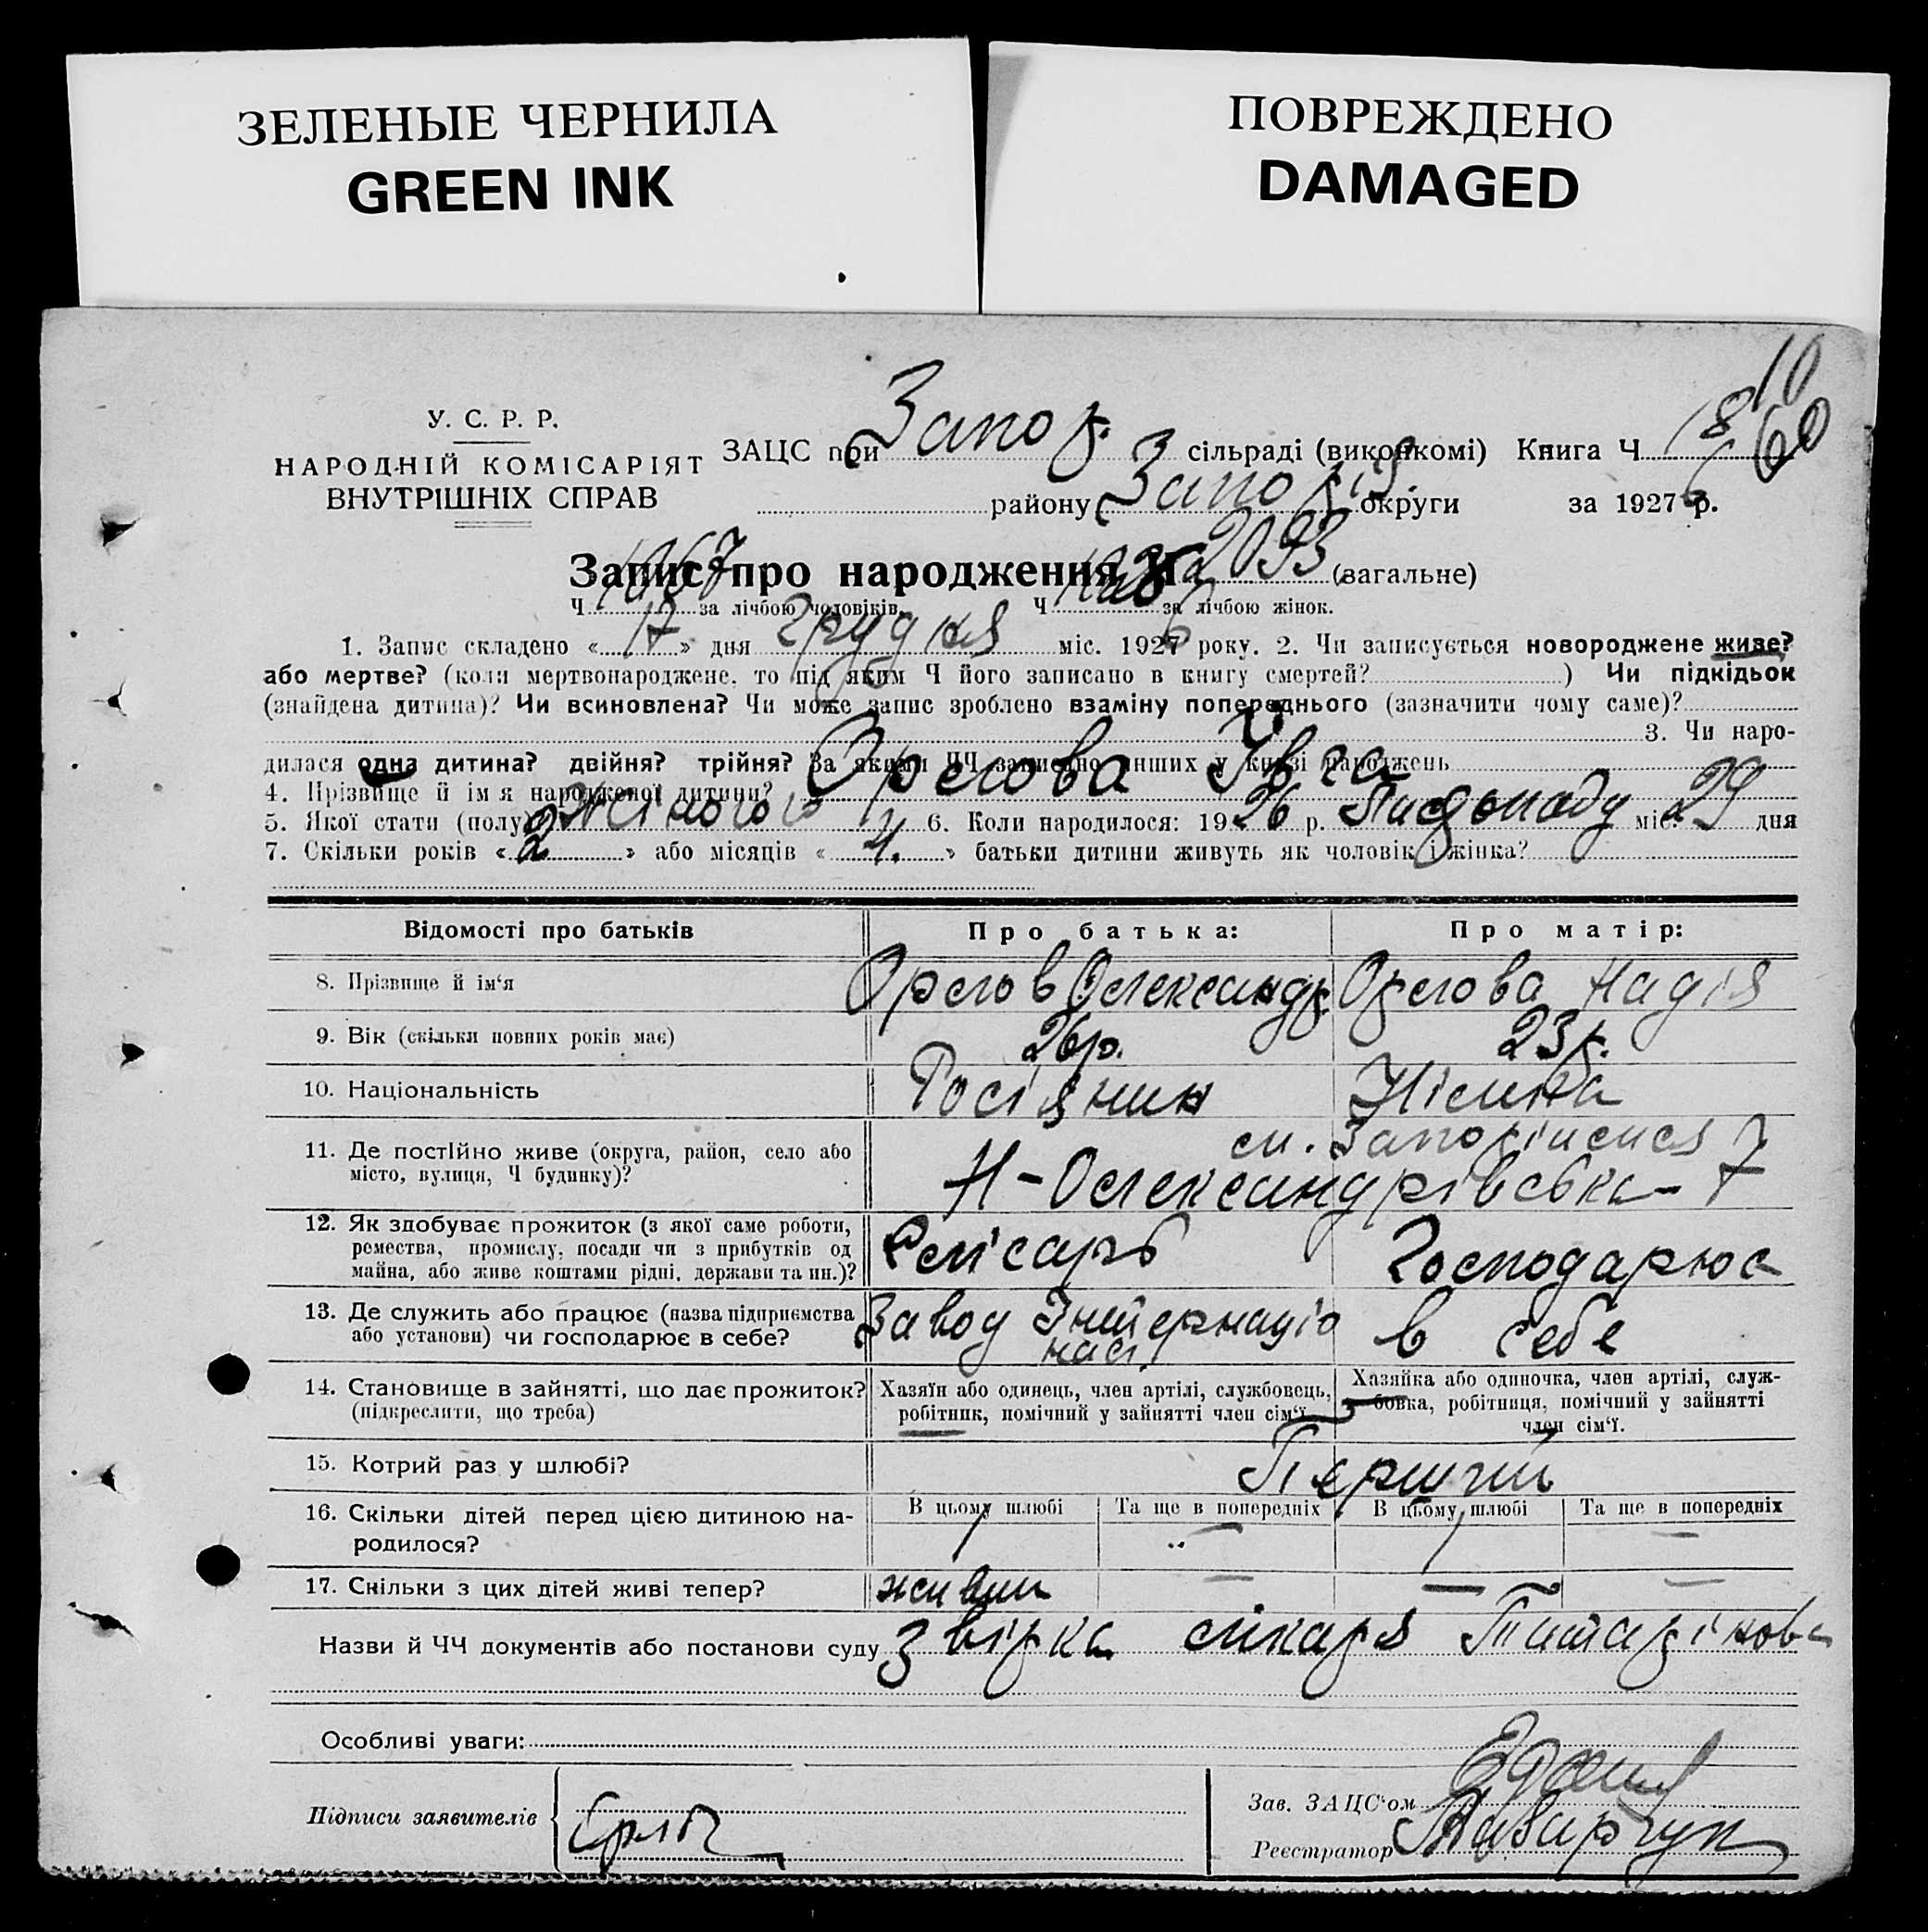 ЗЕЛЕНЫЕ ЧЕРНИЛА
GREEN INK
ПОВРЕЖДЕНО
DAMAGED
У. С. Р. Р.
НАРОДНІЙ КОМІСАРІЯТ
ВНУТРІШНІХ СПРАВ
ЗАЦС при Запор. сільраді (виконкомі) Книга Ч 18
10
60
району Запоріз. округи за 1926 р.
Запис про народження Ч 2093 (загальне)
Ч 1067 за лічбою чоловіків. Ч за лічбою жінок.
1. Запис складено «17» дня грудня міс. 1926 року. 2. Чи записується новороджене живе?
або мертве? (коли мертвонароджене, то під яким Ч його записано в книгу смертей? ) Чи підкідьок
(знайдена дитина)? Чи всиновлена? Чи може запис зроблено взаміну попереднього (зазначити чому саме)?
3. Чи наро-
дилася одна дитина? двійня? трійня? За якими ЧЧ записано инших у книзі народжень
4. Прізвище й ім я народженої дитини? Орлова Івга
5. Якої стати (полу) жіночого 6. Коли народилося: 1926 р. Листопаду міс. 29 дня
7. Скільки років «2» або місяців «4.» батьки дитини живуть як чоловік і жінка?
Відомості про батьків Про батька: Про матір:
8. Прізвище й ім‘я Орлов Олександр. Орлова Надія
9. Вік (скільки повних років має) 26р. 23р.
10. Національність Росіянин Німка
11. Де постійно живе (округа, район, село або
місто, вулиця, Ч будинку)?
Н-Олександрівська 7
12. Як здобуває прожиток (з якої саме роботи,
ремества, промислу, посади чи з прибутків од
майна, або живе коштами рідні, держави та ин.)?
Слісарь Господарює
13. Де служить або працює (назва підприємства
або установи) чи господарює в себе?
Завод Інтернаціо
нал. в себе
14. Становище в зайнятті, що дає прожиток?
(підкреслити, що треба)
Хазяїн або одинець, член артілі, службовець,
робітник, помічний у зайнятті член сім‘ї.
Хазяйка або одиночка, член артілі, служ-
бовка, робітниця, помічний у зайнятті
член сім‘ї.
15. Котрий раз у шлюбі? Перший
16. Скільки дітей перед цією дитиною на-
родилося?
В цьому шлюбі Та ще в попередніх В цьому шлюбі Та ще в попередніх
1 – 1 –
17. Скільки з цих дітей живі тепер? – – –
Назви й ЧЧ документів або постанови суду звірка лікаря Татарінова
Особливі уваги:
Підписи заявителів
Зав. ЗАЦС‘ом
Реєстратор